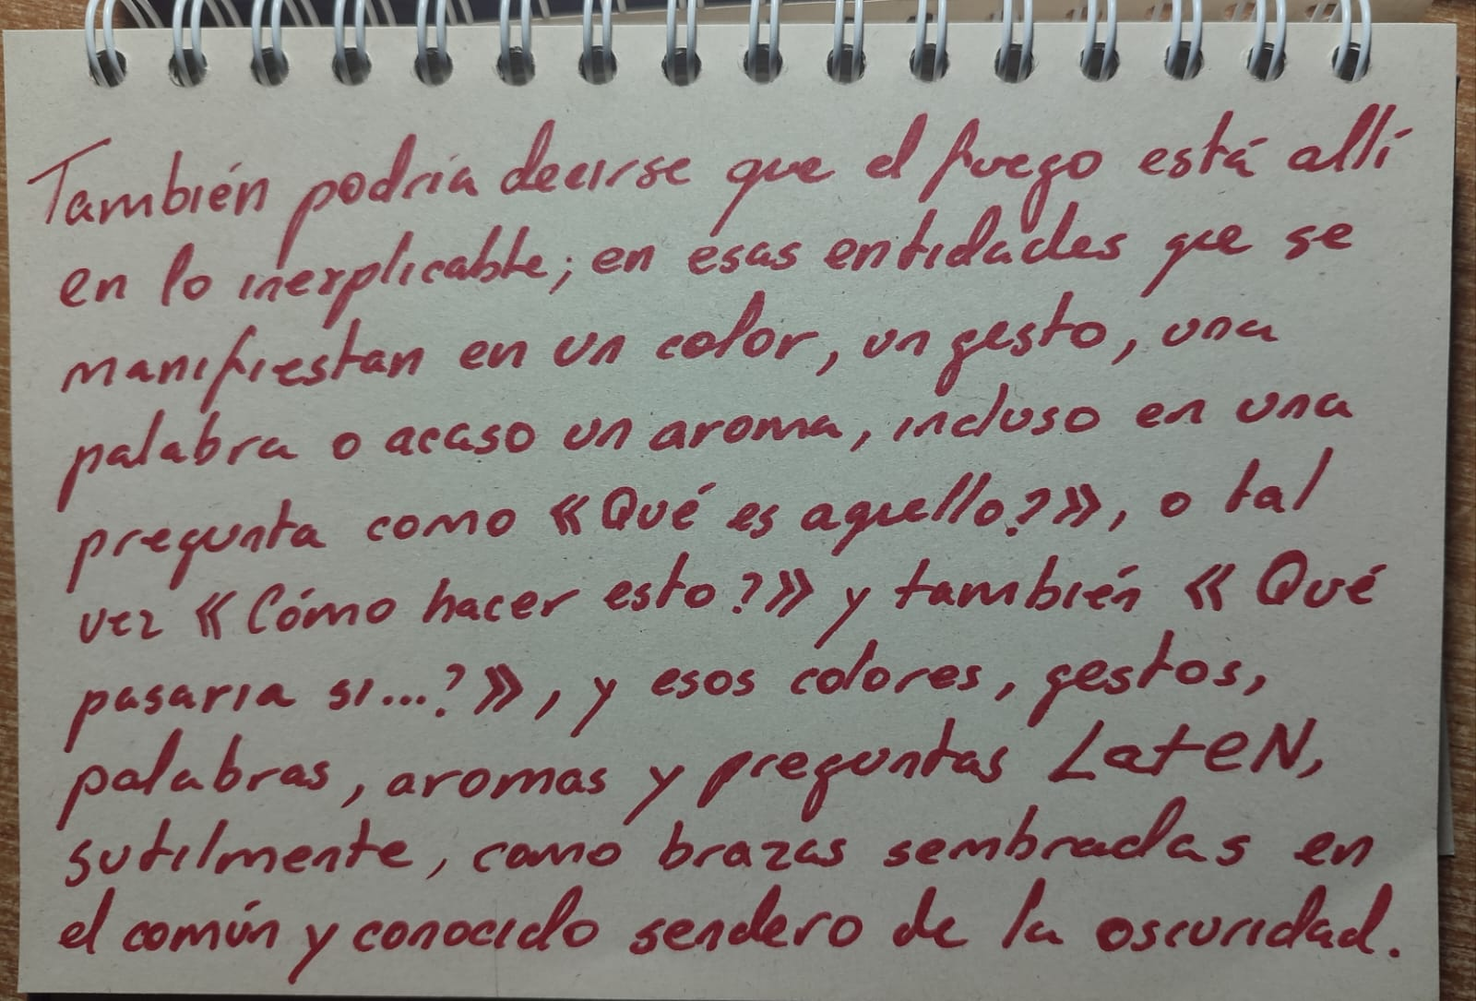 También podría decirse que el fuego está allí
en lo inexplicable; en esas entidades que se
manifiestan en un color, un gesto, una
palabra o acaso un aroma, incluso en una
pregunta como «Qué es aquello?», o tal
vez «Cómo hacer esto?» y también «Qué
pasaría si...?», y esos colores, gestos,
palabras, aromas y preguntas LateN,
sutilmente, como brazas sembradas en
el común y conocido sendero de la oscuridad.